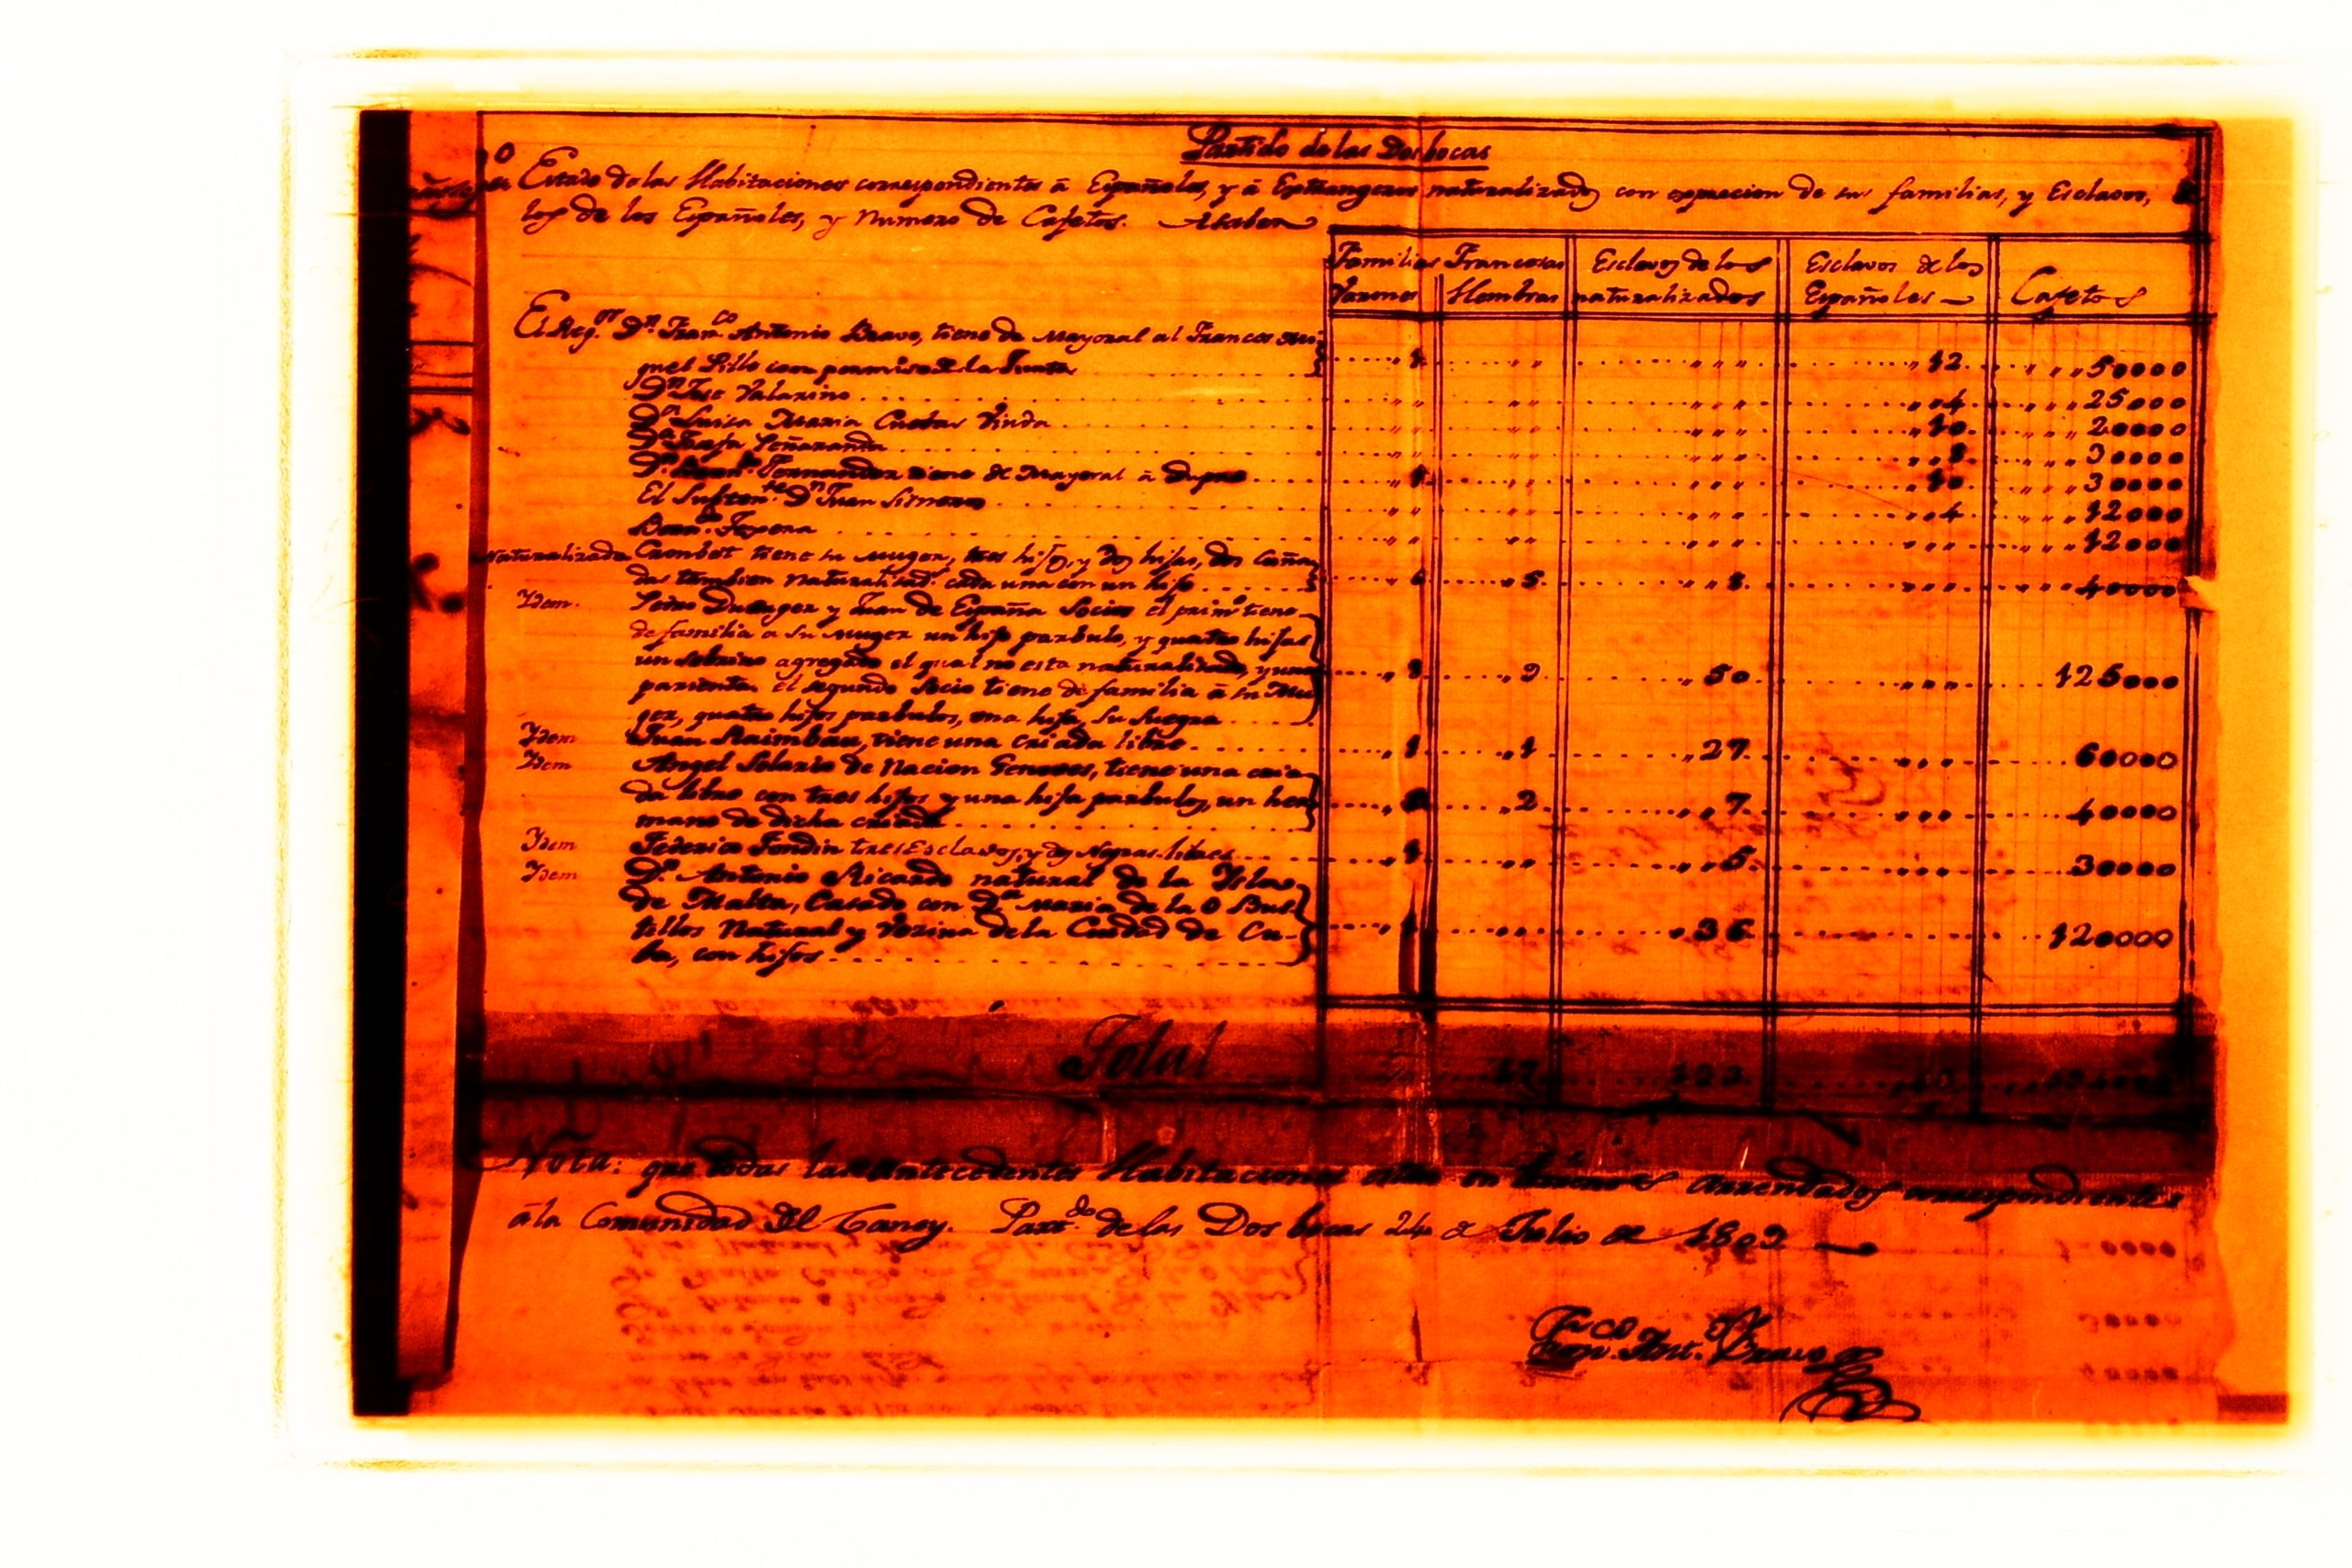 Partido de las Dosbocas
Estado de las Habitaciones correspondientes â Españoles, y â Extrangeros naturalizados con exprecion de sus familias, y Esclavos,
los de los Españoles, y Numero de Cafetos. Asaber
Familias Francesas Esclavos de los Esclavos de los
Varones Hembras naturalizados Españoles Cafetos
El Reg.or Dn. Franco. Antonio Bravo, tiene de Mayoral al Frances Mi-
guel Lillo con permiso de la Junta 1 12 50000
Dn. Jose Valarino 4 25000
Da. Luisa Maria Cuebas Viuda 10 20000
Da. Peñaranda 8 30000
Dn. Fernandez tiene de Mayoral â 1 10 30000
El Subtente. Dn. Juan 4 12000
12000
Naturalizado Cambet tiene su muger, tres hijos, y dos hijas, dos cuña-
das tambien naturalisads. cada una con un hijo 6 5 8 40000
Idem. Pedro y Juan de España Socios el primo. tiene
de familia a su muger un hijo parbulo, y quatro hijas
un sobrino agregado el qual no esta naturalizado, y una
parienta. el segundo Socio tiene de familia â su Mu-
ger, quatro hijos parbulos, una hija, su Suegra 9 50 125000
Idem Juan Raimbau, tiene una criada libre 1 1 27 60000
Idem Angel Solario de Nacion Genoves, tiene una cria-
da libre con tres hijos y una hija parbulos, un her-
mano de dicha criada 2 7 40000
Idem Federico Fondin tres Esclavos, y dos Negras libres 1 5 30000
Idem Dn. Antonio Ricardo natural de la Ysla
de Malta, Casado con Da. Maria de la O Bus-
tillos Natural y Vezina de la Ciudad de Cu-
ba, con hijos 1 36 120000
Total 17 133
Nota: que todas las antecedentes Habitaciones estan en terrenos Arrendados correspondientes
â la Comunidad del Caney. Partdo. de las Dos bocas 24 de Julio de 1809
Franco. Anto. Bravo